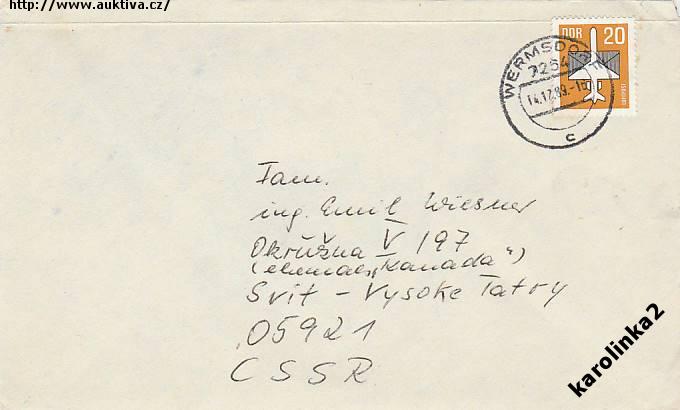 http://www.auktiva.cz/
DDR 20
WERMSDORF
7264
14.12.89.-16
c
Fam.
ing. Emil Wiesner
Okružna V 197
(ehemals „Kanada")
Svit - Vysoke Tatry
05921
CSSR
karolinka2